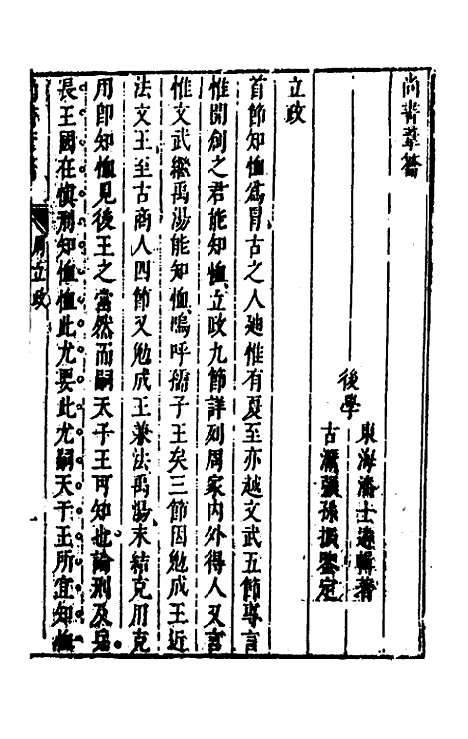 尚書葦籥
後學
東海潘士遴輯著
古潭張孫振鑒定
立政
首節知恤爲冒古之人迪惟有夏至亦越文武五節專言
惟開創之君能知恤立政九節詳列周家內外得人又言
惟文武繼禹湯能知恤嗚呼孺子王矣三節因勉成王近
法文王至古商人四節又勉成王兼法禹湯末結克用克
用卽知恤見後王之當然而嗣天子王可知也論刑及兵
長王國在愼刑知恤恤此尤要此尤嗣天子王所宜知恤
周立政